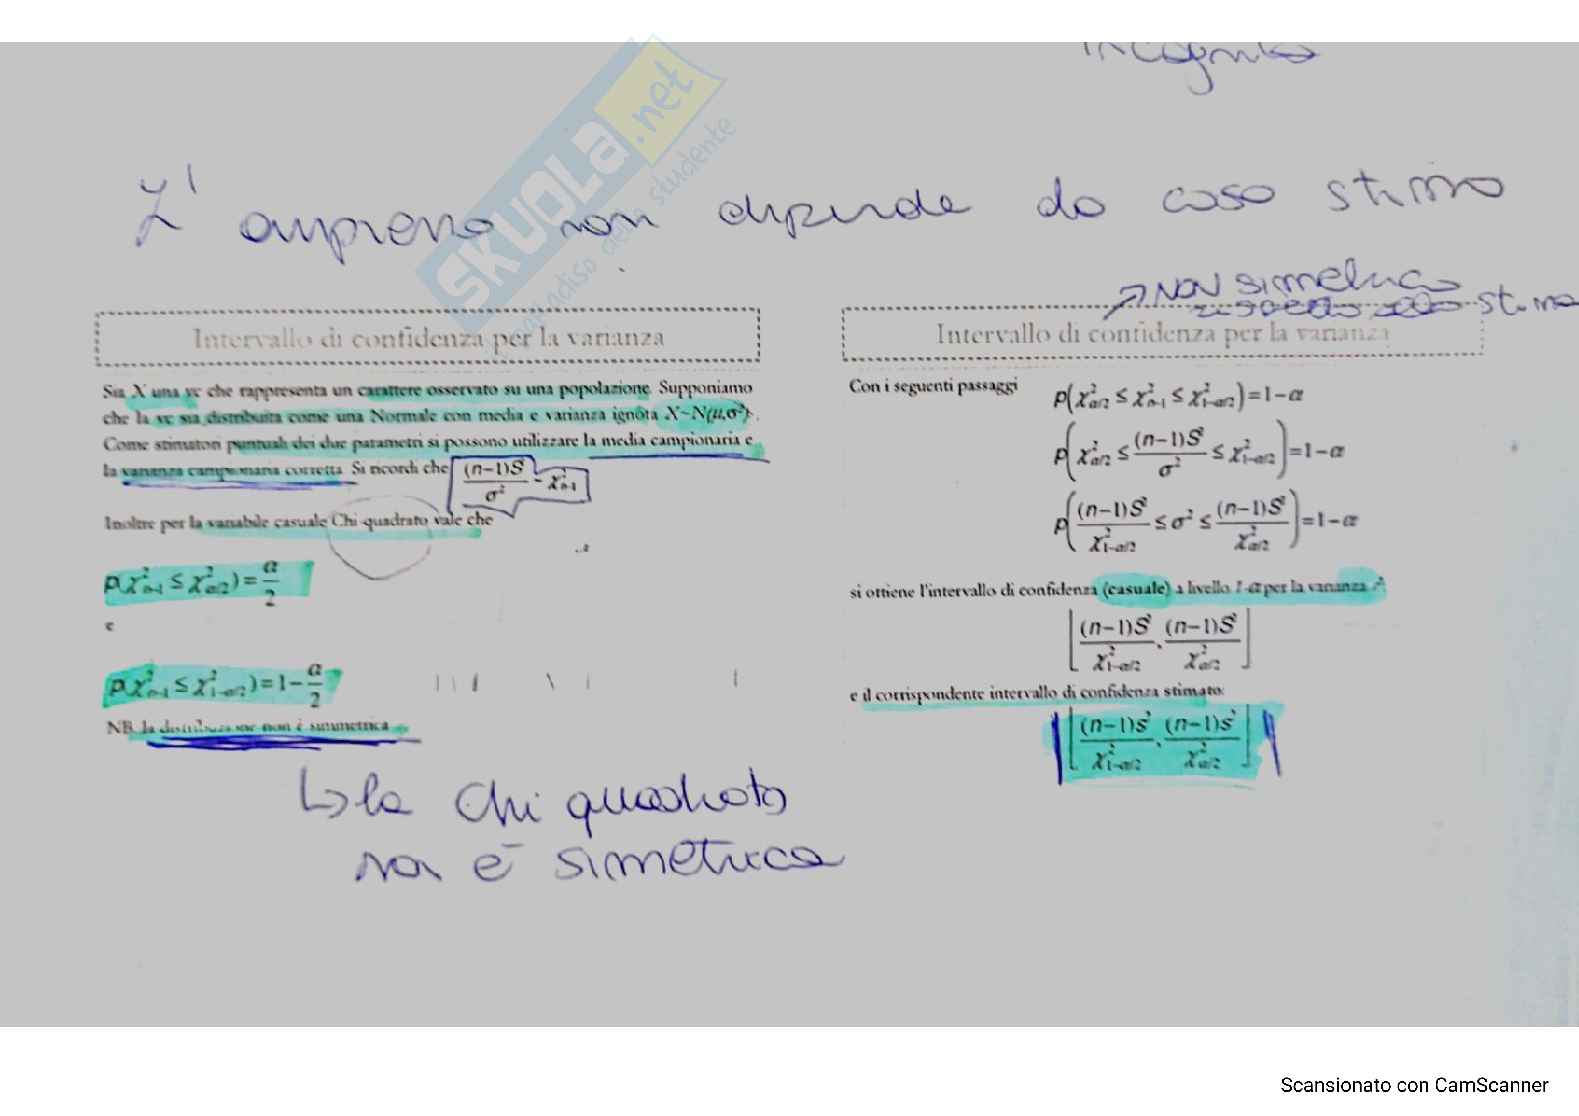 incognita
L'ampiezza non dipende da cosa stimo
SKUOLA.net
paradiso dello studente
Intervallo di confidenza per la varianza
Sia X una vc che rappresenta un carattere osservato su una popolazione. Supponiamo
che la vc sia distribuita come una Normale con media e varianza ignota X~N(μ,σ²).
Come stimatori puntuali dei due parametri si possono utilizzare la media campionaria e
la varianza campionaria corretta. Si ricordi che (n−1)S²/σ² ~ χ²n-1
Inoltre per la variabile casuale Chi-quadrato vale che
P(χ²n-1 ≤ χ²α/2) = α/2
e
P(χ²n-1 ≤ χ²1-α/2) = 1 − α/2
NB. la distribuzione non è simmetrica
↳ la Chi quadrato
non è simetrica
→ NON simetrico
rispetto alla stima
Intervallo di confidenza per la varianza
Con i seguenti passaggi
P(χ²α/2 ≤ χ²n-1 ≤ χ²1-α/2) = 1−α
P(χ²α/2 ≤ (n−1)S²/σ² ≤ χ²1-α/2) = 1−α
P((n−1)S²/χ²1-α/2 ≤ σ² ≤ (n−1)S²/χ²α/2) = 1−α
si ottiene l'intervallo di confidenza (casuale) a livello 1-α per la varianza σ²:
[(n−1)S²/χ²1-α/2 , (n−1)S²/χ²α/2]
e il corrispondente intervallo di confidenza stimato:
[(n−1)s²/χ²1-α/2 , (n−1)s²/χ²α/2]
Scansionato con CamScanner